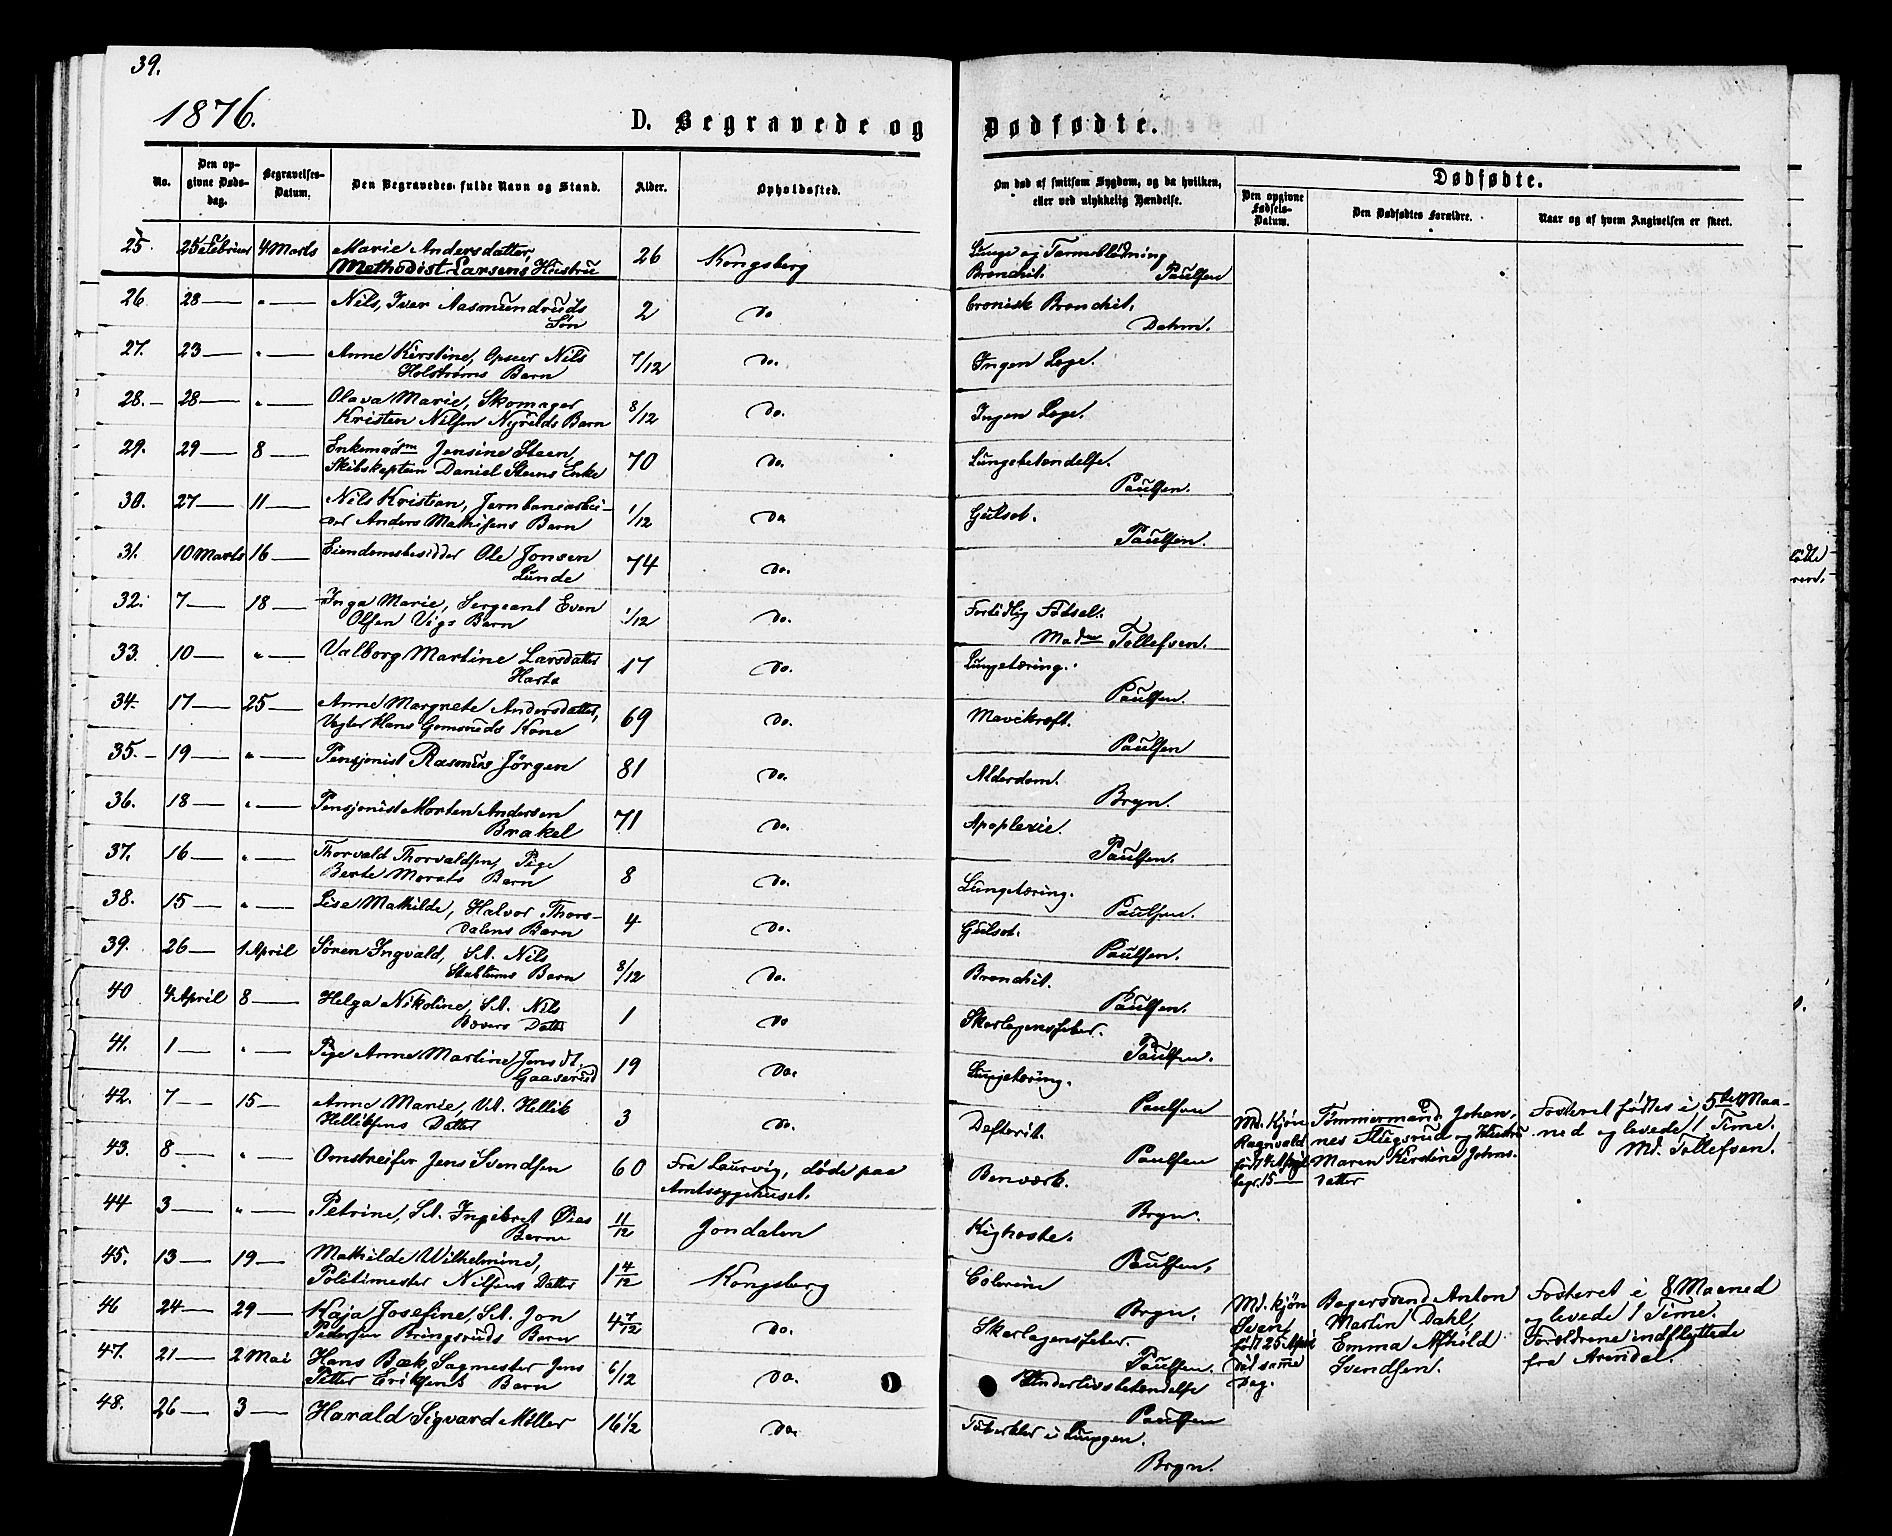 39.
1876.
D. Begravede og Dødfødte.
No.
Den opgivne Dødsdag.
Begravelses-Datum.
Den Begravedes fulde Navn og Stand.
Alder.
Opholdssted.
Om død af smitsom Sygdom, og da hvilken, eller ved ulykkelig Hændelse.
Dødfødte.
Den opgivne Fødsels-Datum.
Den Dødfødtes Forældre.
Naar og af hvem Angivelsen er skeet.
25 25 Februar 4 Marts Marie Andersdatter, 26 Kongsberg Lunge og Tarmeblødning
Methodist Larsens Hustru Bronchit. Paulsen
26. 28 — " — Nils, Iver Aasmundruds 2 do Cronisk Bronchit.
Søn Dahm.
27. 23 — " — Anne Kirstine, Opseer Nils 7/12 do. Ingen Læge.
Holstrøms Barn
28. 28 — " — Olava Marie, Skomager 8/12 do. Ingen Læge.
Kristen Nilsen Barn
29. 29 — 8 — Enkemadm Jensine Steen, 70 do. Lungebetændelse.
Skibskaptein Daniel Steens Enke Paulsen.
30. 27 — 11 — Nils Kristian, Jernbanearbei- 1/12 do Gulsot.
der Anders Mathisens Barn Paulsen.
31. 10 Marts 16 — Eiendomsbesidder Ole Jonsen 74 do.
Lunde
32. 7 — 18 — Inga Marie, Sergeant Even 1/12 do. Fortidlig Fødsel.
Olsen Vigs Barn Madm Tollefsen.
33. 10 — " — Valborg Martine Larsdatter 17 do. Lungetæring.
Paulsen.
34. 17 — 25 — Anne Margrete Andersdatter, 69 do. Mavekræft.
Vegter Hans Gomsruds Kone Paulsen
35. — 19 — " — Pensjonist Rasmus Jørgen 81 do. Alderdom.
Bryn.
36. 18 — " — Pensjonist Morten Andersen 71 do. Apoplexie.
Brakel Paulsen.
37. 16 — " — Thorvald Thorvaldsen, Pige 8 do. Lungetæring.
Berte Morats Barn Paulsen.
38. 15 — " — Lise Mathilde, Halvor Thors- 4 do. Gulsot.
dalens Barn Paulsen.
39. 26 — 1 April Søren Ingvald, S.A. Nils 8/12 do. Bronchit.
Barn Paulsen.
40 4 April 8 — Helga Nikoline, S.A. Nils 1 do Skarlagensfeber.
Bævers Datter Paulsen.
41. 1 — " — Pige Anne Martine Jensdt. 19 do. Lungetæring.
Gaaserud Paulsen
42. 7 — 15 — Anne Marie, Hellik 3 do. Defterit.
Helliksens Datter Paulsen
43. 8 — " — Omstreifer Jens Svendsen 60 Fra Laurvig, døde paa Benværk.
Amtssygehuset. Bryn.
44 3 — " — Petrine, S.A. Ingebret Øies 11/12 Jondalen Kighoste.
Barn Paulsen,
45. 13 — 19 — Mathilde Wilhelmine, 1 4/12 Kongsberg Colerine
Politimester Nilsens Datter Bryn.
46 24 — 29 — Kaja Josefine, S.A. Jon 4 7/12 do. Skarlagensfeber.
Pedersen Bringsruds Barn Paulsen.
47. 21 — 2 Mai Hans Bæk, Sagmester Jens 6/12 do. Underlivsbetændelse
Petter Eriksens Barn Paulsen
48. 26 — 3 — Harald Sigvard Möller 16 1/2 do. Tuberkler i Lungen.
Bryn.
Md. Kjøn Tømmermand Johan- Fosteret fødtes i 5te Maa-
Ragnvald nes og Hustru ned og levede 1 Time.
født 4 April Maren Kirstine Johns- Md. Tollefsen.
begr. 15 — datter
Md. kjøn Bagersvend Anton Fosteret i 8 Maaned
Sven Martin Dahl, og levede 1 Time.
født 25 April Emma Svendsen. Forældrene indflyttede
død samme Dag. fra Arendal.